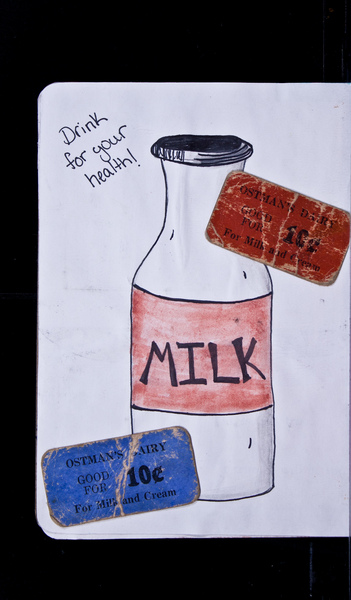 Drink
for your
health!
OSTMAN'S DAIRY
GOOD
FOR 10¢
For Milk and Cream
MILK
OSTMAN'S DAIRY
GOOD
FOR 10¢
For Milk and Cream